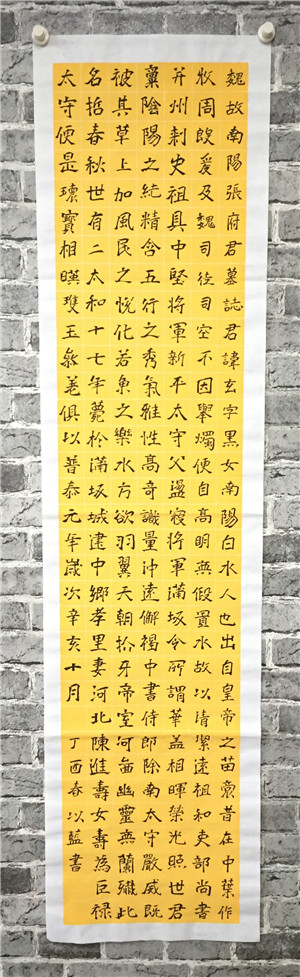 魏故南陽張府君墓誌君諱玄字黑女南陽白水人也出自皇帝之苗裔昔在中葉作
牧周殷爰及魏司徒司空不因舉燭便自高明無假置水故以清潔遠祖和吏部尚書
并州刺史祖具中堅將軍新平太守父盪寇將軍蒲坂令所謂華蓋相暉榮光照世君
稟陰陽之純精含五行之秀氣雅性高奇識量沖遠解褐中書侍郎除南太守嚴威既
被其草上加風民之悅化若魚之樂水方欲羽翼天朝抓牙帝室何啚幽靈無蘭殲此
名哲春秋世有二太和十七年薨於蒲坂城建中鄉孝里妻河北陳進壽女壽為巨祿
太守便是瓌寶相暎瓊玉參差俱以普泰元年歲次辛亥十月 丁酉春以藍書